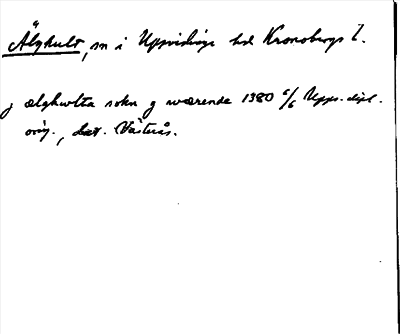 Älghult, sn i Uppvidinge hd Kronobergs l.
j ælghwlta sokn j wærende 1380 6/6 Upps. dipl.
orig., dat. Västerås.